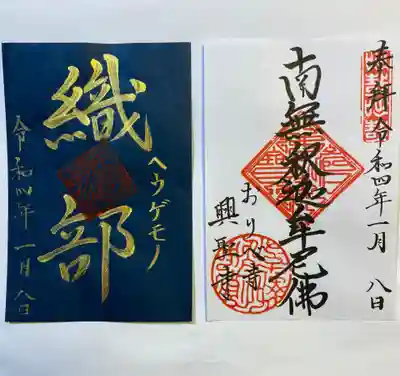 織部
ヘウゲモノ
令和四年 一月 八日
奉拜 令和四年一月 八日
南無釈迦牟尼佛
おり心寺
興聖寺